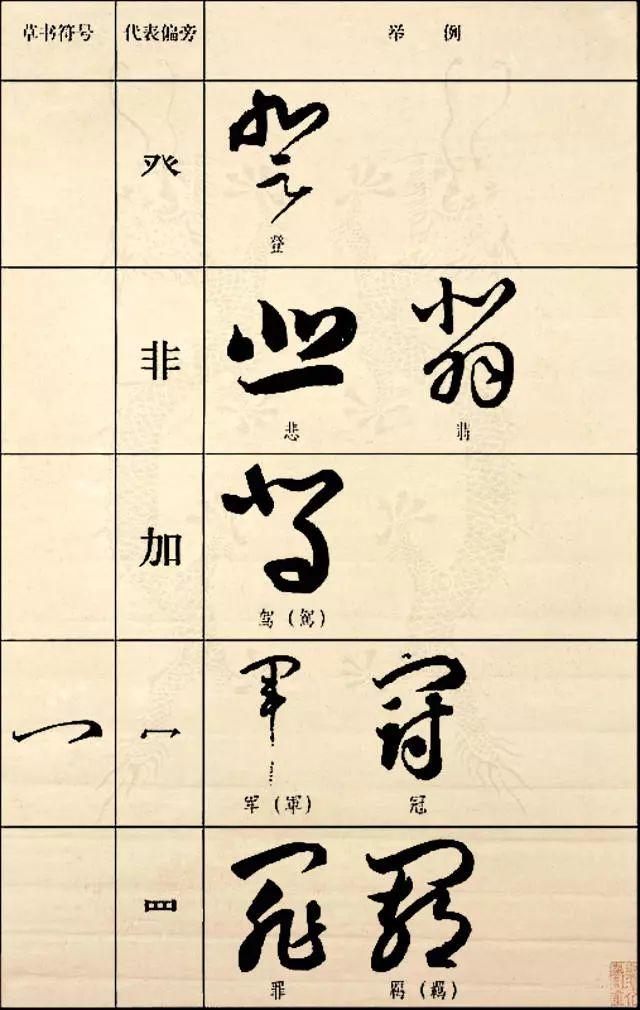 草书符号 代表偏旁 举例
癶
登
非
悲 翡
加
驾(駕)
冖 冖
军(軍) 冠
罒
罪 羁(羈)